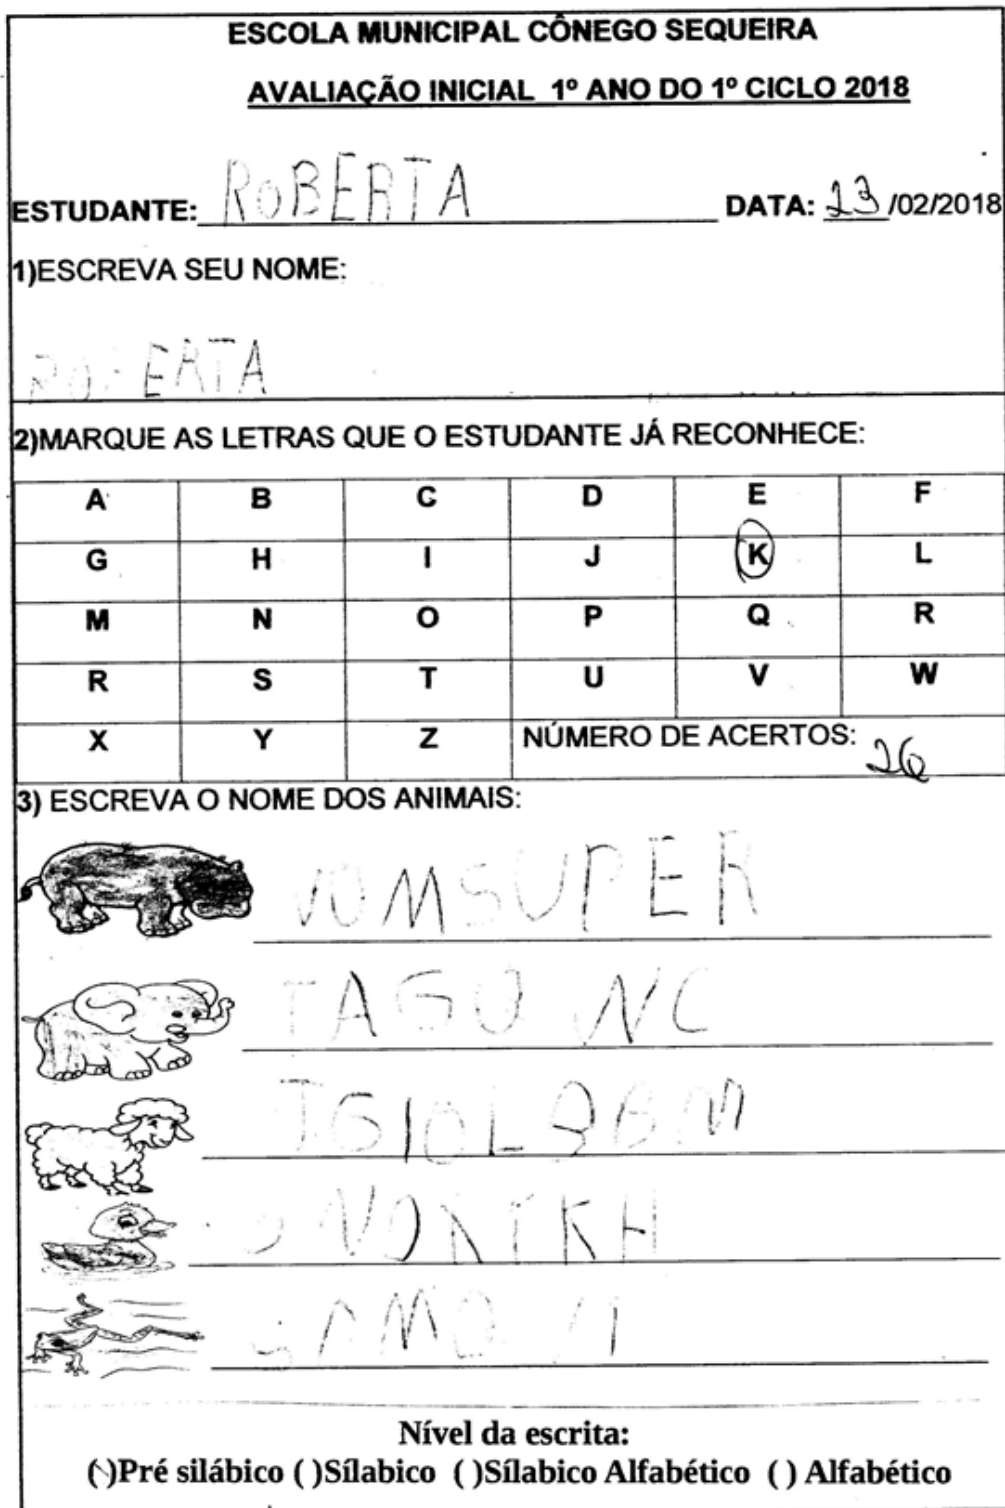 ESCOLA MUNICIPAL CÔNEGO SEQUEIRA
AVALIAÇÃO INICIAL 1º ANO DO 1º CICLO 2018
ESTUDANTE: ROBERTA DATA: 23/02/2018
1)ESCREVA SEU NOME:
ROBERTA
2)MARQUE AS LETRAS QUE O ESTUDANTE JÁ RECONHECE:
A B C D E F
G H I J K L
M N O P Q R
R S T U V W
X Y Z NÚMERO DE ACERTOS: 26
3) ESCREVA O NOME DOS ANIMAIS:
VOMSUPER
TAGU NC
Nível da escrita:
( )Pré silábico ( )Sílabico ( )Sílabico Alfabético ( ) Alfabético